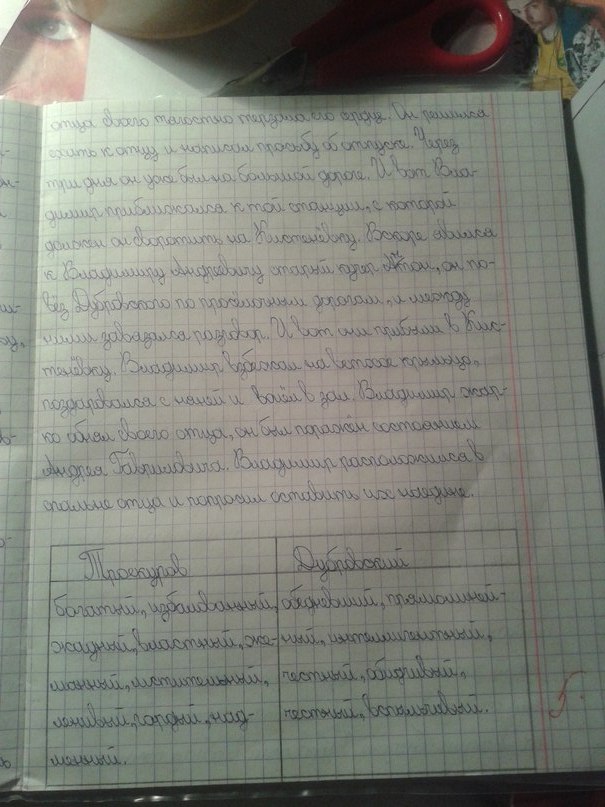 отца своего тягостно терзала его сердце. Он решился
ехать к отцу и написал просьбу об отпуске. Через
три дня он уже был на большой дороге. И вот Вла-
димир приближался к той станции, с которой
должен он своротить на Кистенёвку. Вскоре явился
к Владимиру Андреевичу старый кучер Антон, он по-
вёз Дубровского по просёлочным дорогам, и между
ними завязался разговор. И вот они прибыли в Кис-
тенёвку. Владимир взбежал на ветхое крыльцо,
поздоровался с няней и вошёл в зал. Владимир жар-
ко обнял своего отца, он был поражён состоянием
Андрея Гавриловича. Владимир расположился в
спальне отца и попросил оставить их наедине.
Троекуров Дубровский
богатый, избалованный, обедневший, прямолиней-
жадный, властный, же- ный, интеллигентный,
манный, мстительный, честный, обидчивый,
ленивый, гордый, над- честный, вспыльчивый.
менный.
5.